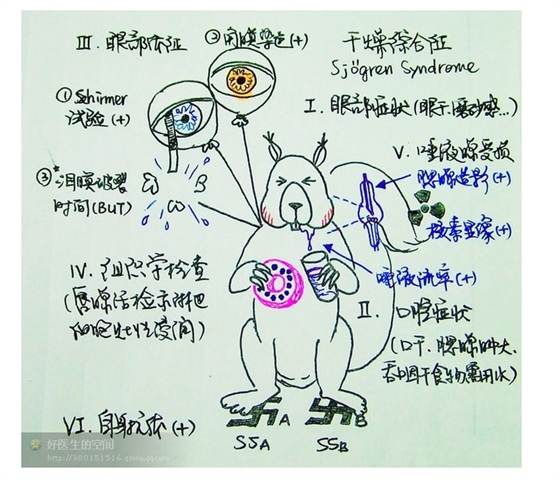 干燥综合征
Sjögren Syndrome
I. 眼部症状(眼干、磨砂感...)
II. 口腔症状
(口干、腮腺肿大、
吞咽干食物需用水)
III. 眼部体征
① Schirmer
试验(+)
② 角膜染色(+)
③* 泪膜破裂
时间(BUT)
B
IV. 组织学检查
(唇腺活检示淋巴
细胞灶性浸润)
V. 唾液腺受损
腮腺造影(+)
核素显像(+)
唾液流率(+)
VI. 自身抗体(+)
A
B
SSA
SSB
好医生的空间
http://980151516.qzone.qq.com